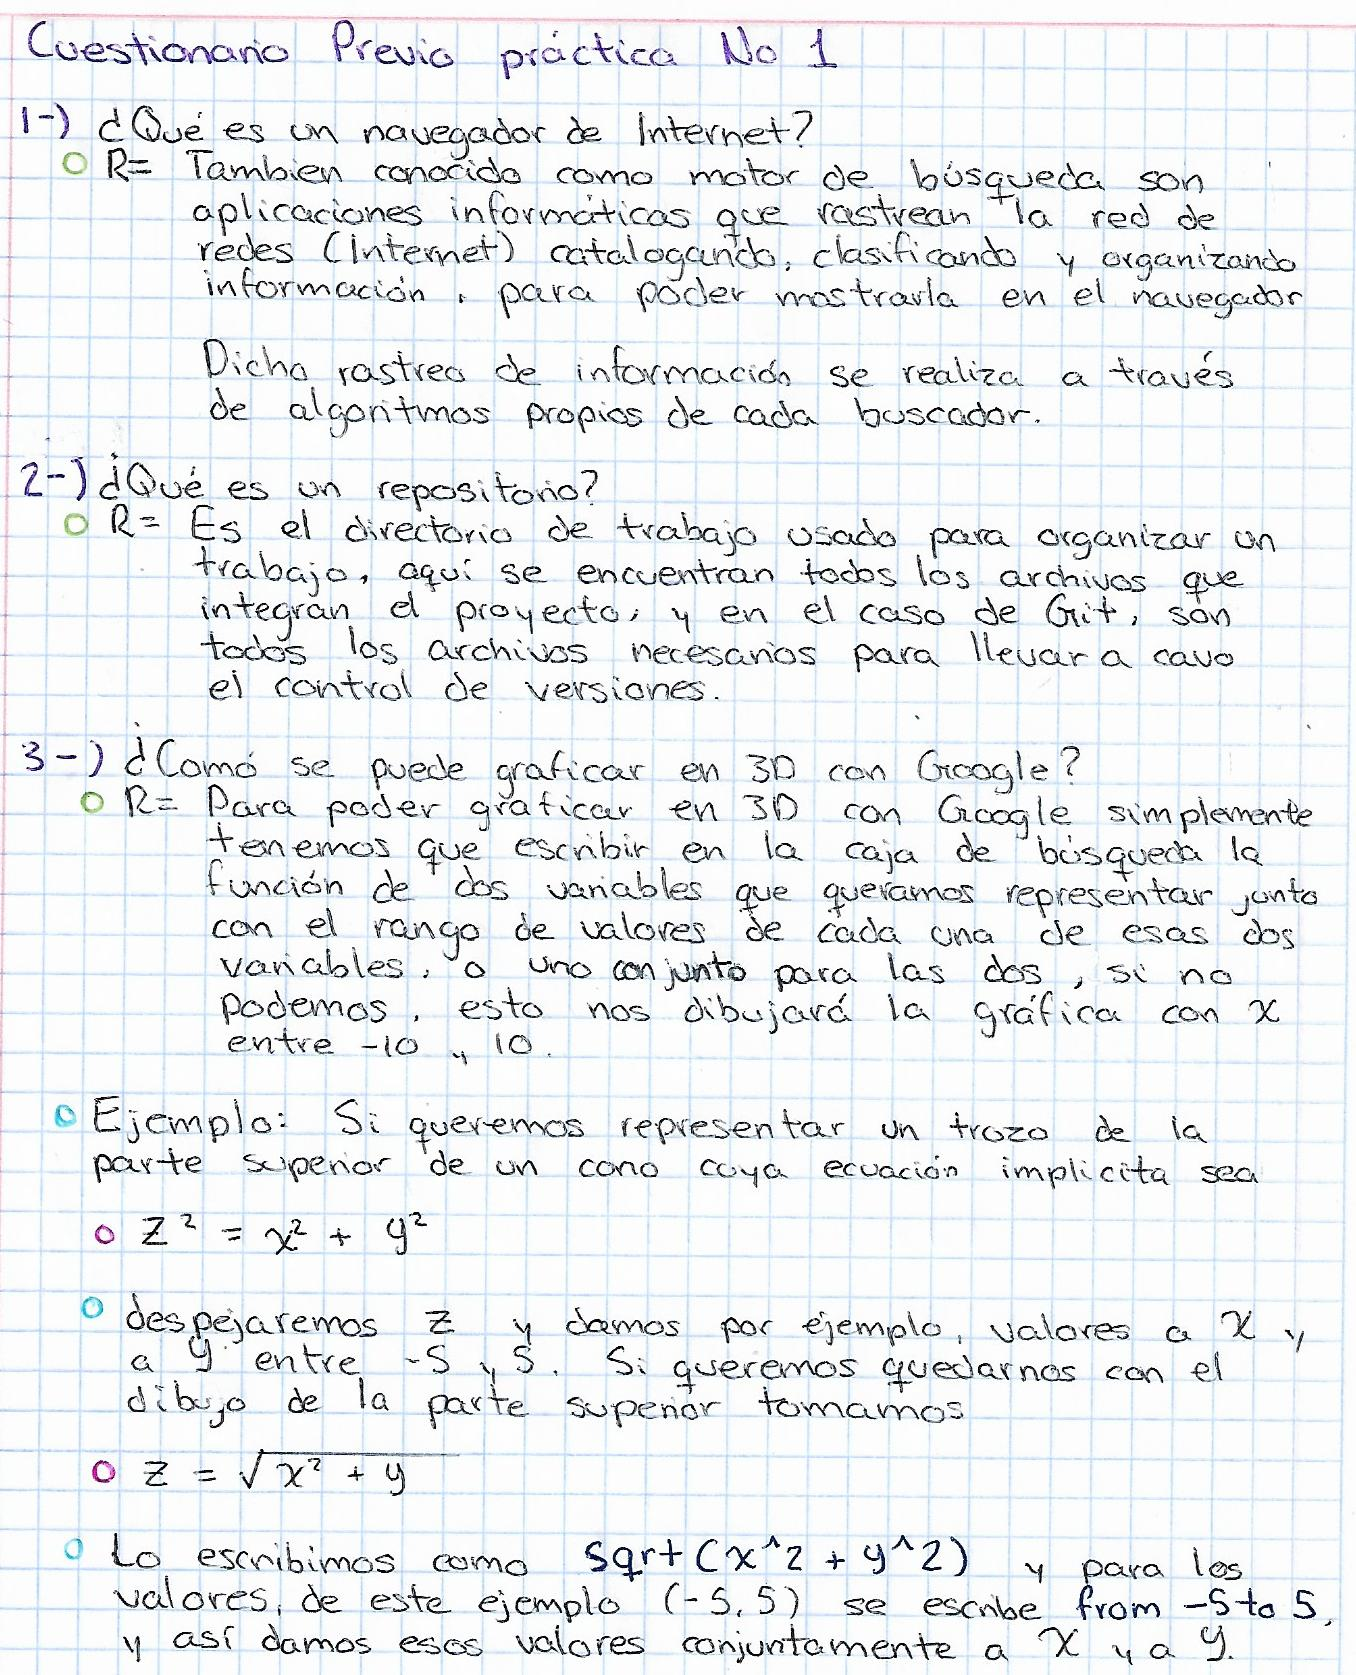 Cuestionario Previo práctica No 1
1-) ¿Qué es un navegador de Internet?
R= Tambien conocido como motor de búsqueda son
aplicaciones informáticas que rastrean la red de
redes (Internet) catalogando, clasificando y organizando
información, para poder mostrarla en el navegador
Dicho rastreo de información se realiza a través
de algoritmos propios de cada buscador.
2-) ¿Qué es un repositorio?
R= Es el directorio de trabajo usado para organizar un
trabajo, aquí se encuentran todos los archivos que
integran el proyecto, y en el caso de Git, son
todos los archivos necesarios para llevar a cavo
el control de versiones.
3-) ¿Comó se puede graficar en 3D con Google?
R= Para poder gráficar en 3D con Google simplemente
tenemos que escribir en la caja de búsqueda la
función de dos variables que queramos representar junto
con el rango de valores de cada una de esas dos
variables, o uno conjunto para las dos, si no
podemos, esto nos dibujará la gráfica con x
entre -10 y 10.
Ejemplo: Si queremos representar un trozo de la
parte superior de un cono cuya ecuación implicita sea
z² = x² + y²
despejaremos z y damos por ejemplo, valores a x y
a y entre -5 y 5. Si queremos quedarnos con el
dibujo de la parte superior tomamos
z = √x² + y
Lo escribimos como sqrt(x^2 + y^2) y para los
valores, de este ejemplo (-5,5) se escribe from -5 to 5,
y así damos esos valores conjuntamente a x y a y.